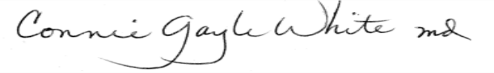 Connie Gayle White md